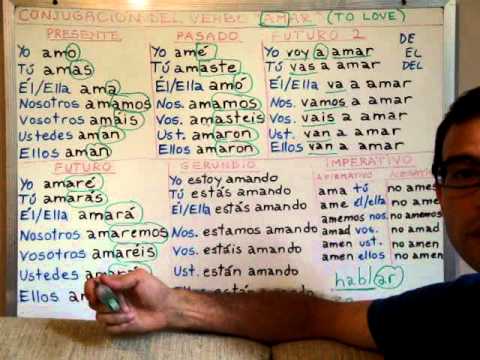 CONJUGACION DEL VERBO "AMAR" (TO LOVE)
PRESENTE
Yo amo
Tú amas
Él/Ella ama
Nosotros amamos
Vosotros amáis
Ustedes aman
Ellos aman
PASADO
Yo amé
Tú amaste
Él/Ella amó
Nos. amamos
Vos. amasteis
Ust. amaron
Ellos amaron
FUTURO 2
Yo voy a amar
Tú vas a amar
Él/Ella va a amar
Nos. vamos a amar
Vos. vais a amar
Ust. van a amar
Ellos van a amar
DE
EL
DEL
FUTURO
Yo amaré
Tú amarás
Él/Ella amará
Nosotros amaremos
Vosotros amaréis
Ustedes
Ellos
GERUNDIO
Yo estoy amando
Tú estás amando
Él/Ella estás amando
Nos. estamos amando
Vos. estáis amando
Ust. están amando
amando
IMPERATIVO
AFIRMATIVO
ama tú
ame él/ella
amemos nos.
amad vos.
amen ust.
amen ellos
no ames
no ame
no amemos
no amen
no amen
hablar